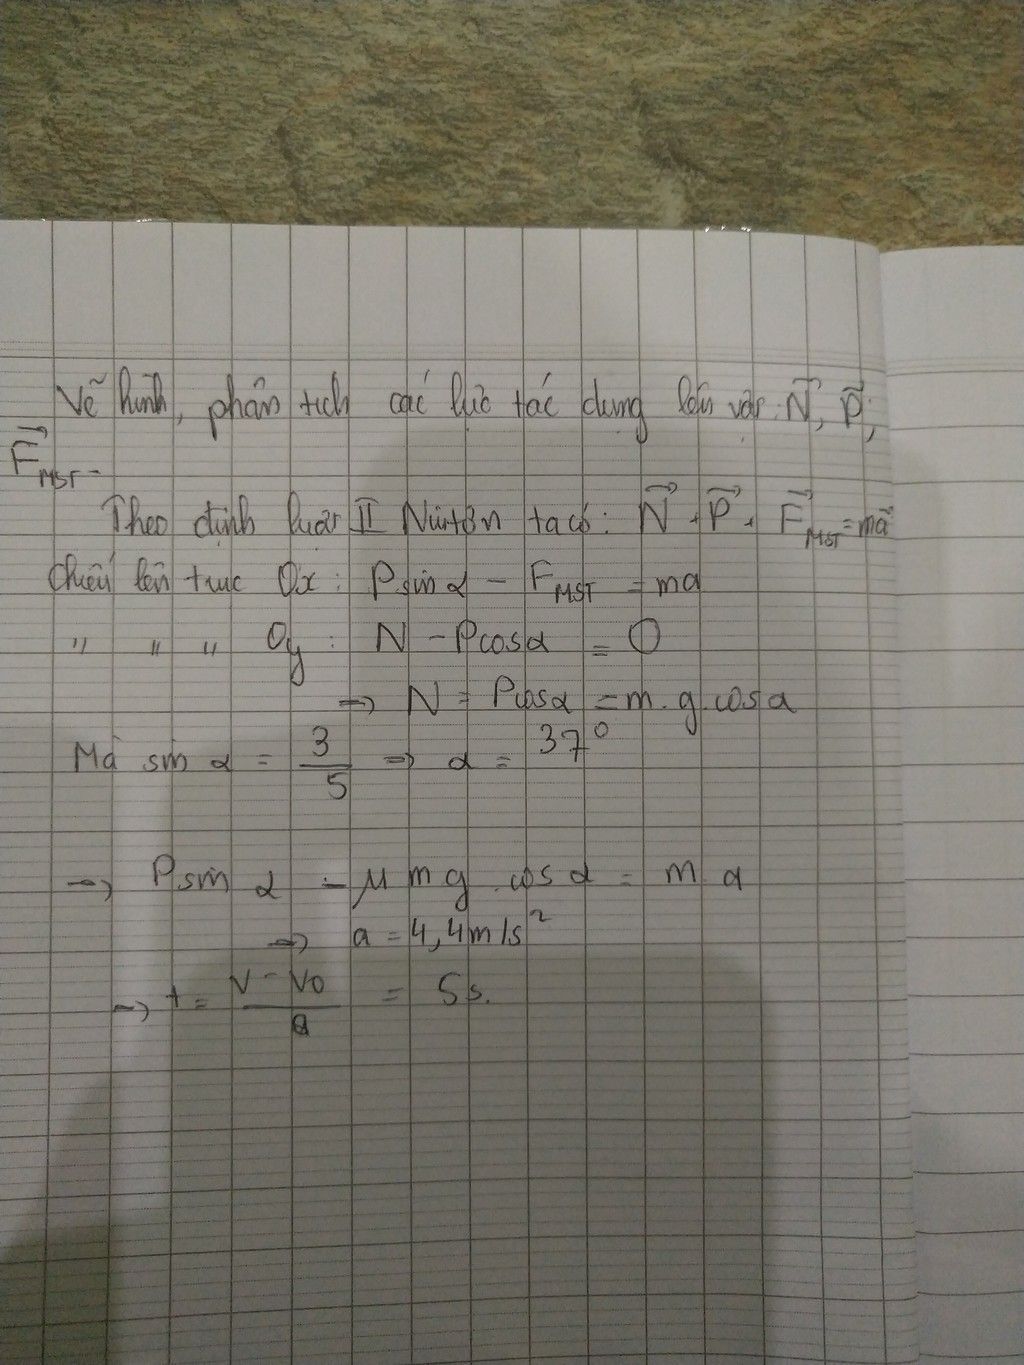 Vẽ hình, phân tích các lực tác dụng lên vật: N⃗, P⃗,
F⃗MST.
Theo định luật II Niutơn ta có: N⃗ + P⃗ + F⃗MST = ma⃗
Chiếu lên trục Ox: Psinα - FMST = ma
" " " Oy: N - Pcosα = 0
→ N = Pcosα = m.g.cosα
Mà sin α = 3/5 → α = 37°
→ Psin α - μ m g cosα = m a
→ a = 4,4m/s²
→ t = (V - V0)/a = 5s.